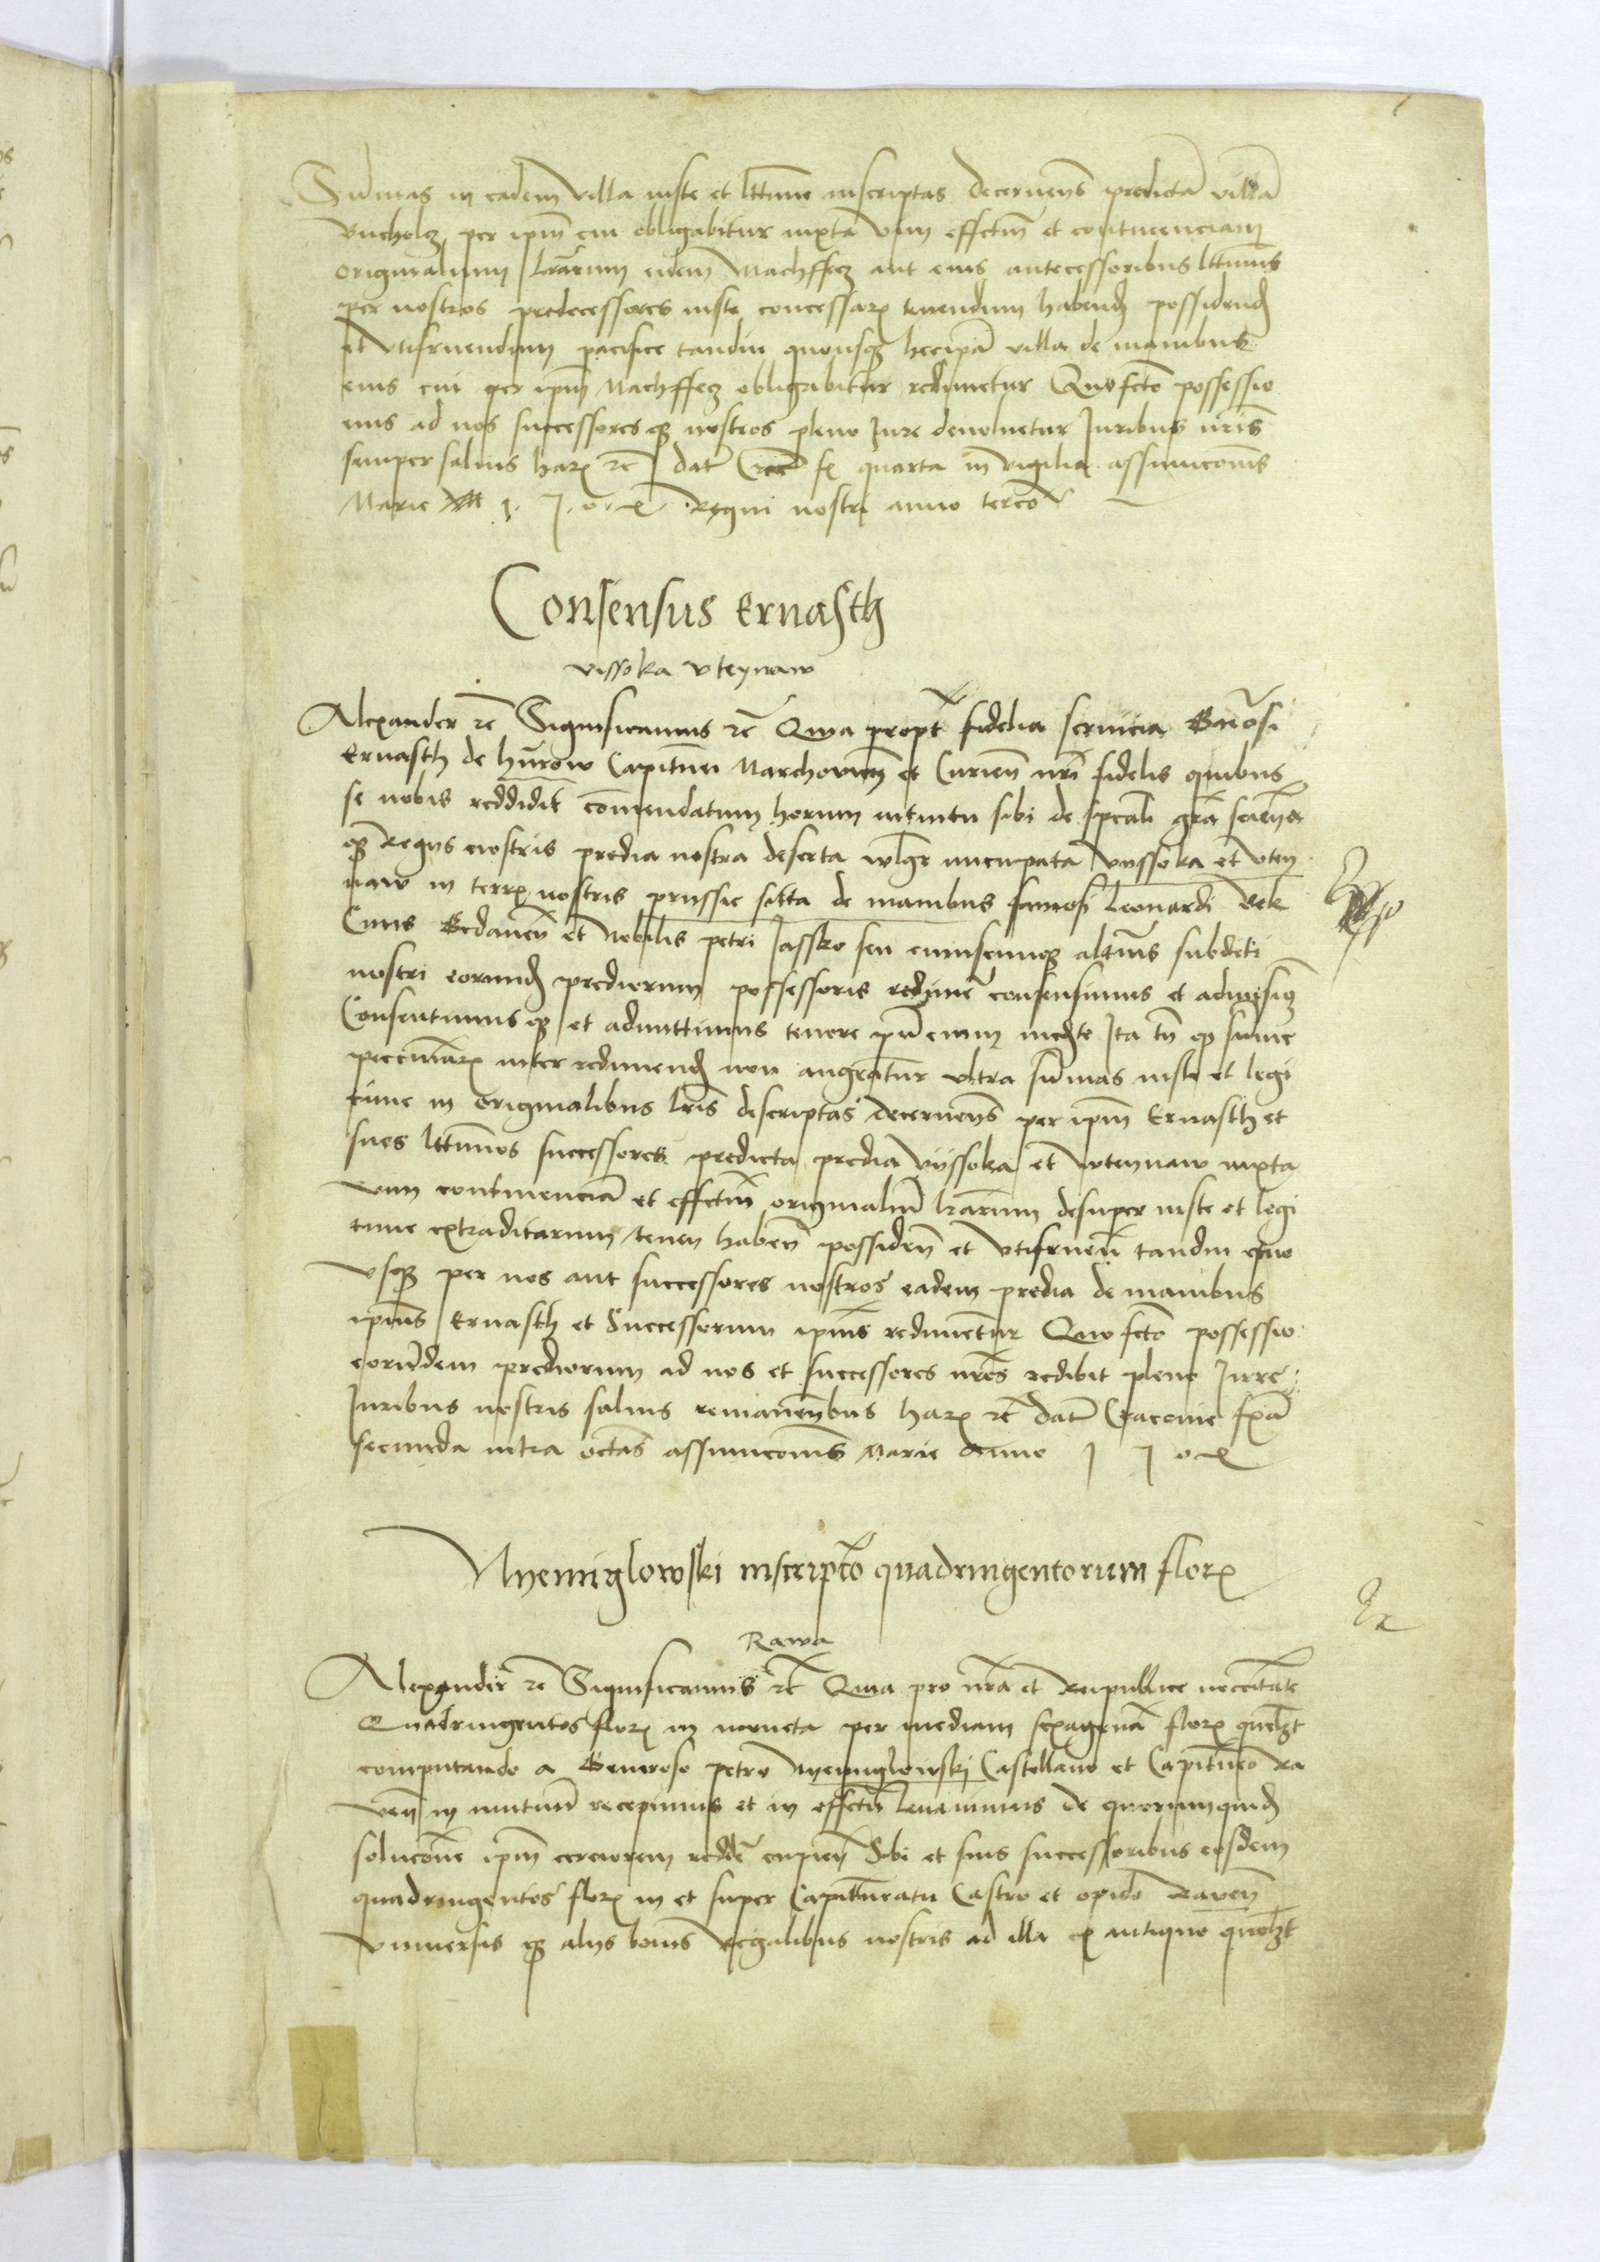 Summas in eadem villa iuste et lttime inscriptas decernens̄ predictā villā
Bucholcz per ipm̄ cui obligabitur iuxta vim effctm̄ et continenciam
originalium lrārum eidem Machffecz aut eius antecessoribus lttimis
per nostros predecessores iuste concessarꝝ tenendum habend possidend
et vtifruendum pacifice tamdiu quousqꝫ hec ipā villa de manibus
eius cui per ipm̄ Machffecz obligabitur redimetur Quo fcto possessio
eius ad nos successoresqꝫ nostros pleno Jure deuoluetur Juribus nrīs
semper saluis harꝝ rc̄ datꝭ Crac f quarta in vigilia assumcōnis
Marie 1 · 5 · 0 · 4 Regni nostri anno tercō
Consensus Ernasth
vissoka vteynaw
Alexander rc̄ Significamus rc̄ Quia propt fidelia seruicia Gnōsi
Ernasth de hurow Capitnei Marchouien̄ et Curien̄ nrī fidelis quibus
se nobis reddidit cōmendatum horum intuitu sibi de spcali grā
qꝫ Regijs nostris predia nostra deserta wlgr nuncupata vyssoka et vtey
naw in terrꝭ nostris prussie sitta de manibus famosi Leonardi Rek
Ciuis Gedanen̄ et Nobilis petri Jassko seu cuiuscunqꝫ alterius subditi
nostri eorund prediorum possessoris redimē consensimus et admisimꝰ
Consentimusqꝫ et admittimus tenore pn̄cium medte Ita tn̄ qꝫ sumē
pecuniarꝝ inter redimend non augeātur vltra sūmas iuste et legi
time in originalibus lrīs descriptas decernens̄ per ipm̄ Ernasth et
suos lttimos successores predicta predia vyssoka et vteynaw iuxta
vim continenciā et effctm̄ originaliū lrārum desuper iuste et legi
time extraditarum tenen haben̄ possiden̄ et vtifruen̄ tamdiu quo
vsqꝫ per nos aut successores nostros eadem predia de manibus
ipius Ernasth et Successorum ipius redimētur Quo fcto possessio
eorūdem prediorum ad nos et successores nrōs redibit pleno Jure
Juribus nostris saluis remanentibus harꝝ rc̄ datꝭ Cracouie fꝭā
secunda intra octas assumcōnis Marie Anno 1 5 0 4
Nyemiglowski inscriptō quadringentorum florꝭ
Rawa
Alexander rc̄ Significamus rc̄ Quia pro nrā et Reipublice necctitate
Quadringentos florꝭ in moneta per mediam sexagenā florꝭ quēlꝫt
computando a Generoso petro Nyemiglowskj Castellano et Capitneo Ra
uen̄ in mutuū recepimus et in effctū leuauimus de quorumquid
solucōne ipm̄ cerciorem reddē cupien̄ Sibi et suis successoribus eosdem
quadringentos florꝭ in et super Capitneatu Castro et opido Rauen̄
vniuersisqꝫ alijs bonis regalibus nostris ad illa ex antiquo quolꝫt